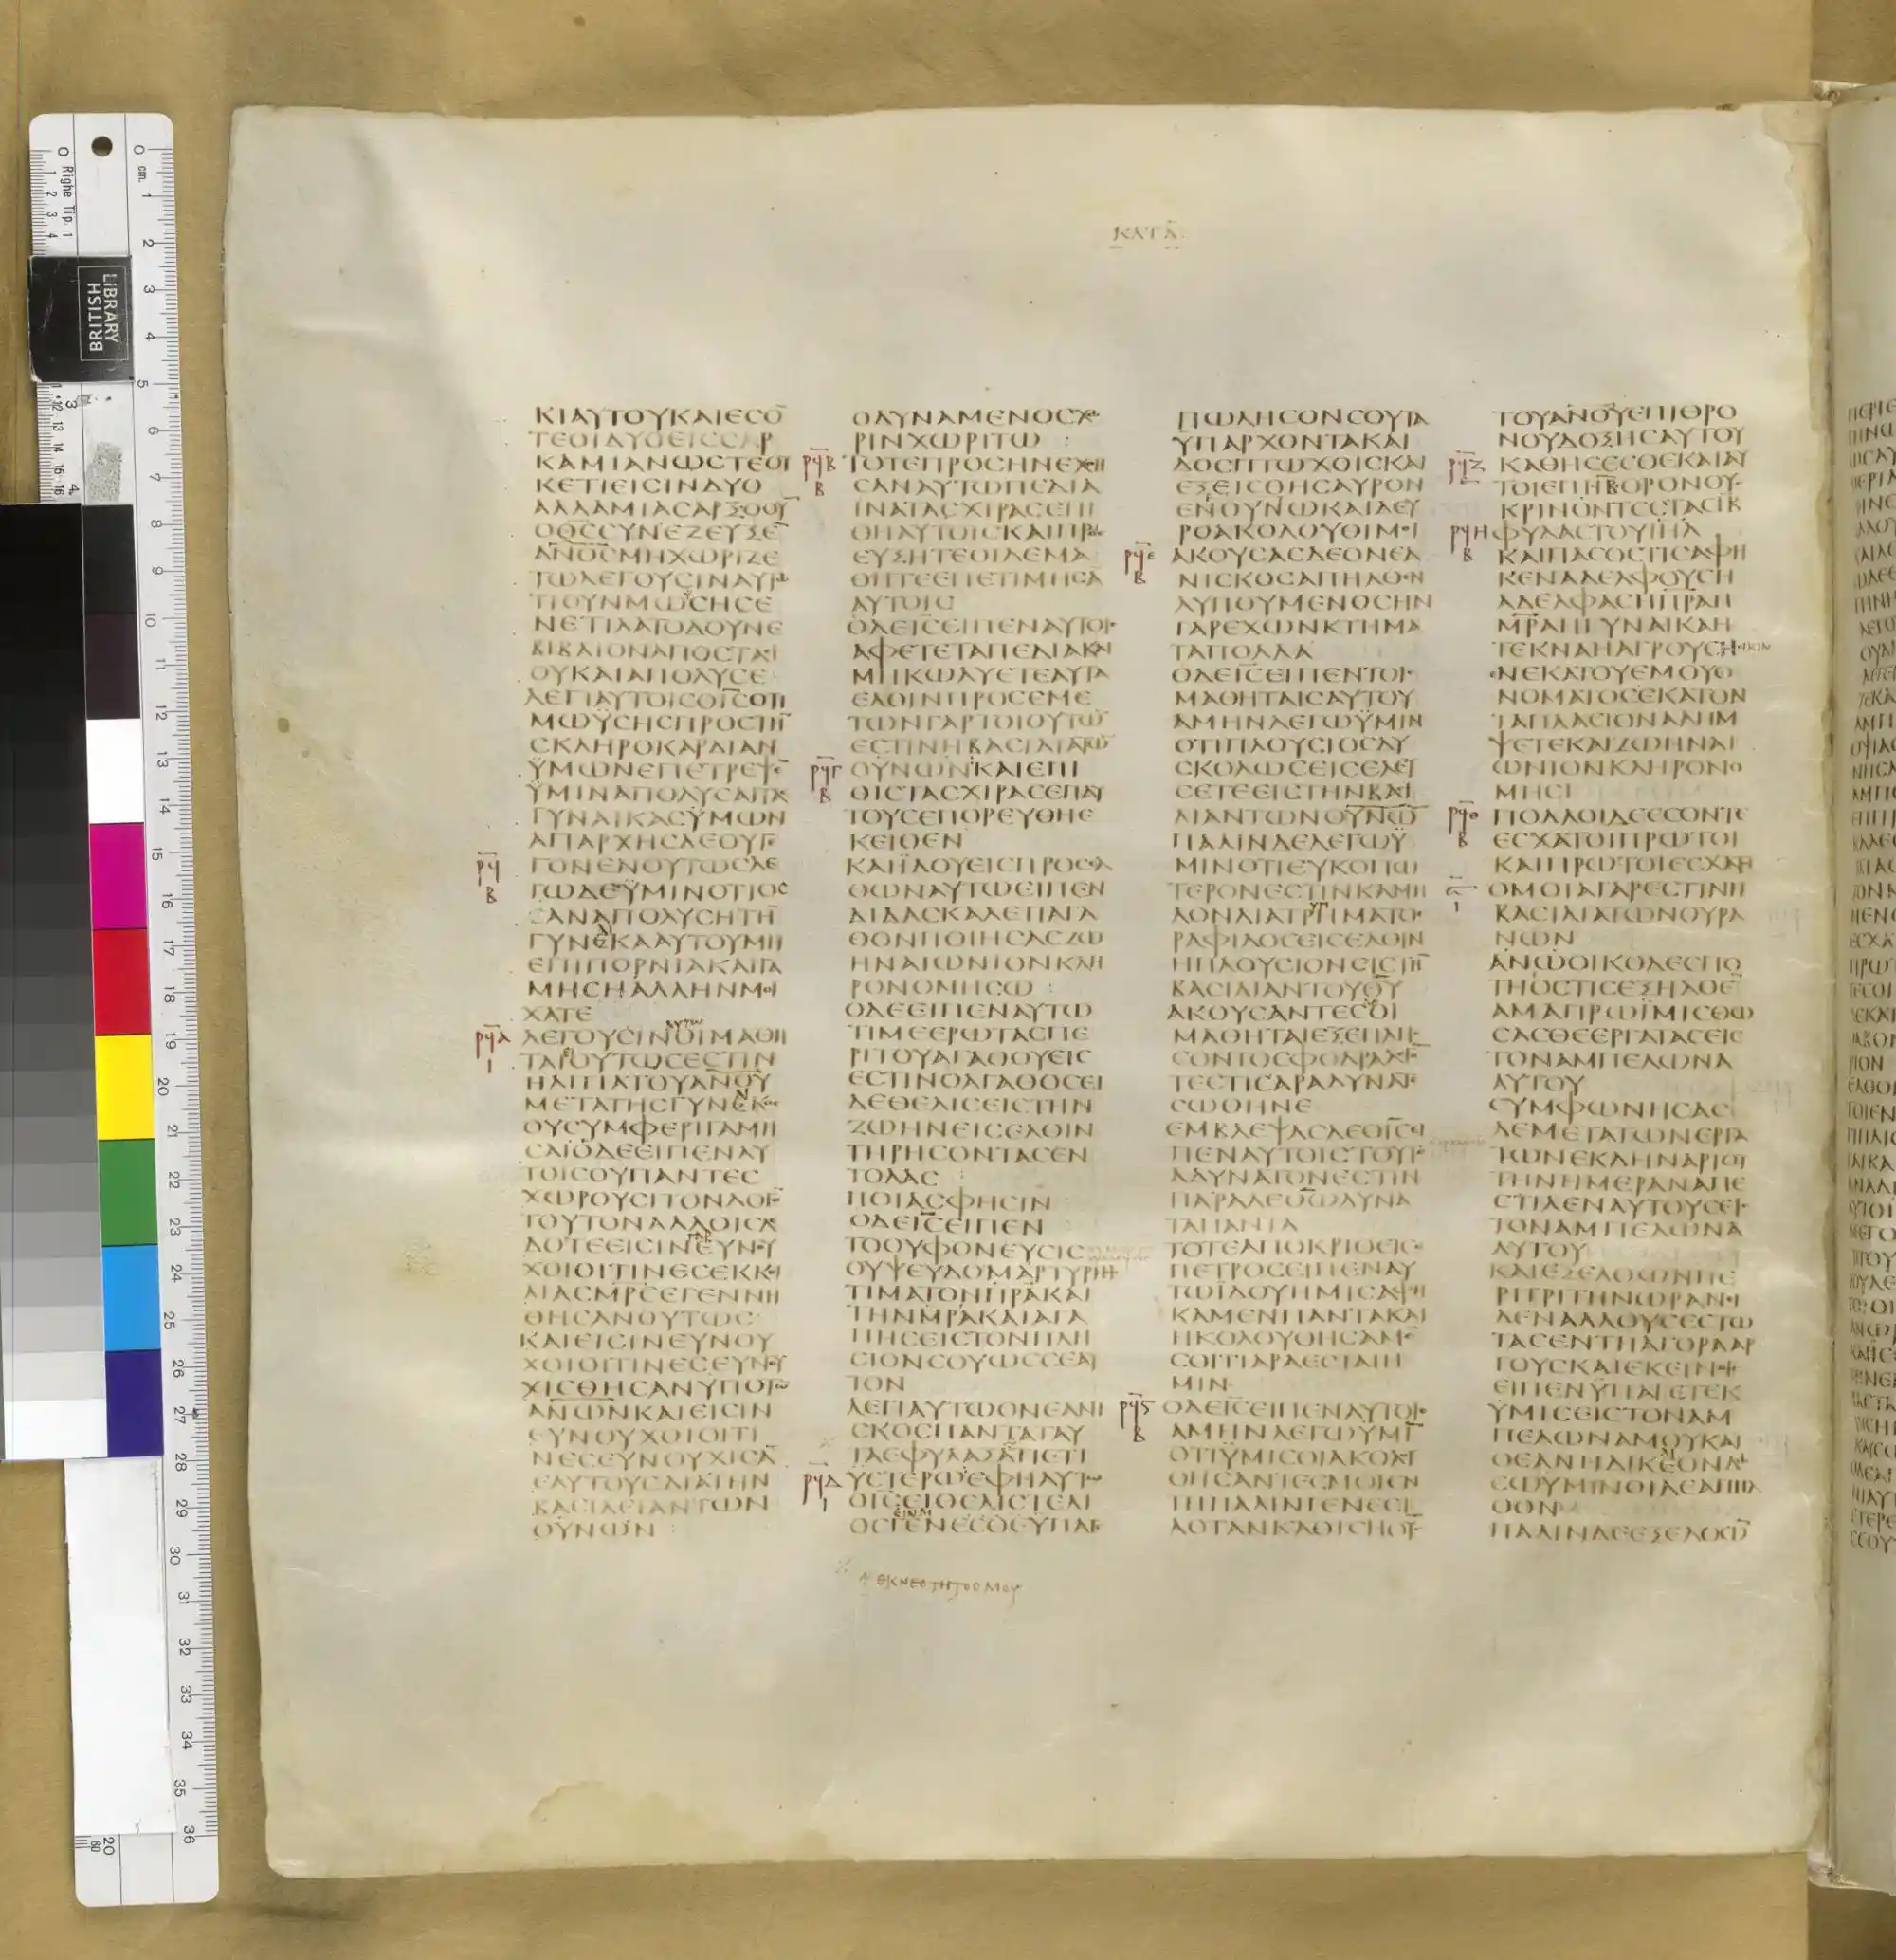 ΚΑΤΑ
ΚΙΑΥΤΟΥΚΑΙΕϹΟ̅
ΤΕΟΙΔΥΟΕΙϹϹΑΡ
ΚΑΜΙΑΝΩϹΤΕΟΥ
ΚΕΤΙΕΙϹΙΝΔΥΟ
ΑΛΛΑΜΙΑϹΑΡΞΟΟΥ̅
Ο̅Θ̅Ϲ̅ϹΥΝΕΖΕΥΞΕ̅
Α̅Ν̅Ο̅Ϲ̅ΜΗΧΩΡΙΖΕ
ΤΩΛΕΓΟΥϹΙΝΑΥΤΩ
ΤΙΟΥΝΜΩϹΗϹΕ
ΝΕΤΙΛΑΤΟΔΟΥΝΕ
ΒΙΒΛΙΟΝΑΠΟϹΤΑϹΙ
ΟΥΚΑΙΑΠΟΛΥϹΕ
ΛΕΓΙΑΥΤΟΙϹΟΙ̅Ϲ̅ΟΤΙ
ΜΩΫϹΗϹΠΡΟϹΤΗ̅
ϹΚΛΗΡΟΚΑΡΔΙΑΝ
ΫΜΩΝΕΠΕΤΡΕΨΕ̅
ΫΜΙΝΑΠΟΛΥϹΑΙΤΑϹ
ΓΥΝΑΙΚΑϹΫΜΩΝ
ΑΠΑΡΧΗϹΔΕΟΥΓΕ
ΓΟΝΕΝΟΥΤΩϹΛΕ
ΓΩΔΕΫΜΙΝΟΤΙΟϹ
ϹΑΝΑΠΟΛΥϹΗΤΗ̅
ΓΥΝΕΚΑΑΥΤΟΥΜΗ
ΕΠΙΠΟΡΝΙΑΚΑΙΓΑ
ΜΗϹΗΑΛΛΗΝΜΟΙ
ΧΑΤΕ
ΛΕΓΟΥϹΙΝΟΙΜΑΘΗ
ΤΑΙΟΥΤΩϹΕϹΤΙΝ
ΗΑΙΤΙΑΤΟΥΑ̅Ν̅Ο̅Υ̅
ΜΕΤΑΤΗϹΓΥΝΕΚΟϹ
ΟΥϹΥΜΦΕΡΙΓΑΜΗ
ϹΑΙΟΔΕΕΙΠΕΝΑΥ
ΤΟΙϹΟΥΠΑΝΤΕϹ
ΧΩΡΟΥϹΙΤΟΝΛΟΓΟ̅
ΤΟΥΤΟΝΑΛΛΟΙϹΔΕ
ΔΟΤΕΕΙϹΙΝΕΥΝΟΥ
ΧΟΙΟΙΤΙΝΕϹΕΚΚΟΙ
ΛΙΑϹΜ̅Ρ̅Ϲ̅ΕΓΕΝΝΗ
ΘΗϹΑΝΟΥΤΩϹ
ΚΑΙΕΙϹΙΝΕΥΝΟΥ
ΧΟΙΟΙΤΙΝΕϹΕΥΝΟΥ
ΧΙϹΘΗϹΑΝΫΠΟΤΩ̅
Α̅Ν̅Ω̅Ν̅ΚΑΙΕΙϹΙΝ
ΕΥΝΟΥΧΟΙΟΙΤΙ
ΝΕϹΕΥΝΟΥΧΙϹΑ̅
ΕΑΥΤΟΥϹΔΙΑΤΗΝ
ΒΑϹΙΛΕΙΑΝΤΩΝ
ΟΥΝΩΝ
ΟΔΥΝΑΜΕΝΟϹΧΩ
ΡΙΝΧΩΡΙΤΩ
ΤΟΤΕΠΡΟϹΗΝΕΧΘΗ
ϹΑΝΑΥΤΩΠΕΔΙΑ
ΙΝΑΤΑϹΧΙΡΑϹΕΠΙ
ΘΗΑΥΤΟΙϹΚΑΙΠΡΟϹ
ΕΥΞΗΤΕΟΙΔΕΜΑ
ΘΗΤΕΕΠΕΤΙΜΗϹΑ̅
ΑΥΤΟΙϹ
ΟΔΕΙ̅Ϲ̅ΕΙΠΕΝΑΥΤΟΙϹ
ΑΦΕΤΕΤΑΠΕΔΙΑΚΑΙ
ΜΗΚΩΛΥΕΤΕΑΥΤΑ
ΕΛΘΙΝΠΡΟϹΕΜΕ
ΤΩΝΓΑΡΤΟΙΟΥΤΩ̅
ΕϹΤΙΝΗΒΑϹΙΛΙΑΤΩ̅
ΟΥΝΩΝΚΑΙΕΠΙ
ΘΙϹΤΑϹΧΙΡΑϹΕΠΑΥ
ΤΟΥϹΕΠΟΡΕΥΘΗΕ
ΚΕΙΘΕΝ
ΚΑΙΪΔΟΥΕΙϹΠΡΟϹΕΛ
ΘΩΝΑΥΤΩΕΙΠΕΝ
ΔΙΔΑϹΚΑΛΕΤΙΑΓΑ
ΘΟΝΠΟΙΗϹΑϹΖΩ
ΗΝΑΙΩΝΙΟΝΚΛΗ
ΡΟΝΟΜΗϹΩ
ΟΔΕΕΙΠΕΝΑΥΤΩ
ΤΙΜΕΕΡΩΤΑϹΠΕ
ΡΙΤΟΥΑΓΑΘΟΥΕΙϹ
ΕϹΤΙΝΟΑΓΑΘΟϹΕΙ
ΔΕΘΕΛΙϹΕΙϹΤΗΝ
ΖΩΗΝΕΙϹΕΛΘΙΝ
ΤΗΡΗϹΟΝΤΑϹΕΝ
ΤΟΛΑϹ
ΠΟΙΑϹΦΗϹΙΝ
ΟΔΕΙ̅Ϲ̅ΕΙΠΕΝ
ΤΟΟΥΦΟΝΕΥϹΙϹ
ΟΥΨΕΥΔΟΜΑΡΤΥΡΗϹ
ΤΙΜΑΤΟΝΠ̅Ρ̅Α̅ΚΑΙ
ΤΗΝΜ̅Ρ̅Α̅ΚΑΙΑΓΑ
ΠΗϹΕΙϹΤΟΝΠΛΗ
ϹΙΟΝϹΟΥΩϹϹΕΑΥ
ΤΟΝ
ΛΕΓΙΑΥΤΩΟΝΕΑΝΙ
ϹΚΟϹΠΑΝΤΑΤΑΥ
ΤΑΕΦΥΛΑΞΑΤΙΕΤΙ
ΥϹΤΕΡΩΕΦΗΑΥΤΩ
ΟΙ̅Ϲ̅ΕΙΘΕΛΙϹΤΕΛΙ
ΟϹΓΕΝΕϹΘΕΥΠΑΓΕ
ΕΚΝΕΟΤΗΤΟϹΜΟΥ
ΠΩΛΗϹΟΝϹΟΥΤΑ
ΫΠΑΡΧΟΝΤΑΚΑΙ
ΔΟϹΠΤΩΧΟΙϹΚΑΙ
ΕΞΕΙϹΘΗϹΑΥΡΟΝ
ΕΝΟΥΝΩΚΑΙΔΕΥ
ΡΟΑΚΟΛΟΥΘΙΜΟΙ
ΑΚΟΥϹΑϹΔΕΟΝΕΑ
ΝΙϹΚΟϹΑΠΗΛΘΕΝ
ΛΥΠΟΥΜΕΝΟϹΗΝ
ΓΑΡΕΧΩΝΚΤΗΜΑ
ΤΑΠΟΛΛΑ
ΟΔΕΙ̅Ϲ̅ΕΙΠΕΝΤΟΙϹ
ΜΑΘΗΤΑΙϹΑΥΤΟΥ
ΑΜΗΝΛΕΓΩΫΜΙΝ
ΟΤΙΠΛΟΥϹΙΟϹΔΥ
ϹΚΟΛΩϹΕΙϹΕΛΕΥ
ϹΕΤΕΕΙϹΤΗΝΒΑϹΙ
ΛΙΑΝΤΩΝΟΥΝΩ̅
ΠΑΛΙΝΔΕΛΕΓΩΫ
ΜΙΝΟΤΙΕΥΚΟΠΩ
ΤΕΡΟΝΕϹΤΙΝΚΑΜΗ
ΛΟΝΔΙΑΤΡΥΜΑΤΟϹ
ΡΑΦΙΔΟϹΕΙϹΕΛΘΙΝ
ΗΠΛΟΥϹΙΟΝΕΙϹΤΗ̅
ΒΑϹΙΛΙΑΝΤΟΥΘ̅Υ̅
ΑΚΟΥϹΑΝΤΕϹΟΙ
ΜΑΘΗΤΑΙΕΞΕΠΛΗϹ
ϹΟΝΤΟϹΦΟΔΡΑΛΕΓΟ̅
ΤΕϹΤΙϹΑΡΑΔΥΝΑΤΕ
ϹΩΘΗΝΕ
ΕΜΒΛΕΨΑϹΔΕΟΙ̅Ϲ̅ΕΙ
ΠΕΝΑΥΤΟΙϹΤΟΥΤΟ
ΑΔΥΝΑΤΟΝΕϹΤΙΝ
ΠΑΡΑΔΕΘ̅Ω̅ΔΥΝΑ
ΤΑΠΑΝΤΑ
ΤΟΤΕΑΠΟΚΡΙΘΕΙϹ
ΠΕΤΡΟϹΕΙΠΕΝΑΥ
ΤΩΪΔΟΥΗΜΙϹΑΦΗ
ΚΑΜΕΝΠΑΝΤΑΚΑΙ
ΗΚΟΛΟΥΘΗϹΑΜΕ̅
ϹΟΙΤΙΑΡΑΕϹΤΑΙΗ
ΜΙΝ
ΟΔΕΙ̅Ϲ̅ΕΙΠΕΝΑΥΤΟΙϹ
ΑΜΗΝΛΕΓΩΥΜΙ̅
ΟΤΙΫΜΙϹΟΙΑΚΟΛΟΥ
ΘΗϹΑΝΤΕϹΜΟΙΕΝ
ΤΗΠΑΛΙΝΓΕΝΕϹΙ
ΑΟΤΑΝΚΑΘΙϹΗΟΥ̅
ΤΟΥΑ̅Ν̅Ο̅Υ̅ΕΠΙΘΡΟ
ΝΟΥΔΟΞΗϹΑΥΤΟΥ
ΚΑΘΗϹΕϹΘΕΚΑΙΑΥ
ΤΟΙΕΠΙΙΒΘΡΟΝΟΥϹ
ΚΡΙΝΟΝΤΕϹΤΑϹΙΒ
ΦΥΛΑϹΤΟΥΙ̅Η̅Λ̅
ΚΑΙΠΑϹΟϹΤΙϹΑΦΗ
ΚΕΝΑΔΕΛΦΟΥϹΗ
ΑΔΕΛΦΑϹΗΠ̅Ρ̅Α̅Η
Μ̅Ρ̅Α̅ΗΓΥΝΑΙΚΑΗ
ΤΕΚΝΑΗΑΓΡΟΥϹΗ
ΝΕΚΑΤΟΥΕΜΟΥΟ
ΝΟΜΑΤΟϹΕΚΑΤΟΝ
ΤΑΠΛΑϹΙΟΝΑΛΗΜ
ΨΕΤΕΚΑΙΖΩΗΝΑΙ
ΩΝΙΟΝΚΛΗΡΟΝΟ
ΜΗϹΙ
ΠΟΛΛΟΙΔΕΕϹΟΝΤΕ
ΕϹΧΑΤΟΙΠΡΩΤΟΙ
ΚΑΙΠΡΩΤΟΙΕϹΧΑΤΟΙ
ΟΜΟΙΑΓΑΡΕϹΤΙΝΗ
ΒΑϹΙΛΙΑΤΩΝΟΥΡΑ
ΝΩΝ
Α̅Ν̅Ω̅ΟΙΚΟΔΕϹΠΟ
ΤΗΟϹΤΙϹΕΞΗΛΘΕ̅
ΑΜΑΠΡΩΪΜΙϹΘΩ
ϹΑϹΘΕΕΡΓΑΤΑϹΕΙϹ
ΤΟΝΑΜΠΕΛΩΝΑ
ΑΥΤΟΥ
ϹΥΜΦΩΝΗϹΑϹ
ΔΕΜΕΤΑΤΩΝΕΡΓΑ
ΤΩΝΕΚΔΗΝΑΡΙΟΥ
ΤΗΝΗΜΕΡΑΝΑΠΕ
ϹΤΙΛΕΝΑΥΤΟΥϹΕΙϹ
ΤΟΝΑΜΠΕΛΩΝΑ
ΑΥΤΟΥ
ΚΑΙΕΞΕΛΘΩΝΠΕ
ΡΙΤΡΙΤΗΝΩΡΑΝΕΙ
ΔΕΝΑΛΛΟΥϹΕϹΤΩ
ΤΑϹΕΝΤΗΑΓΟΡΑΑΡ
ΓΟΥϹΚΑΙΕΚΕΙΝΟΙϹ
ΕΙΠΕΝΫΠΑΓΕΤΕΚ
ΫΜΙϹΕΙϹΤΟΝΑΜ
ΠΕΛΩΝΑΜΟΥΚΑΙ
ΟΕΑΝΗΔΙΚΕΟΝΔΩ
ϹΩΥΜΙΝΟΙΔΕΑΠΗΛ
ΘΟΝ
ΠΑΛΙΝΔΕΕΞΕΛΘΩ̅